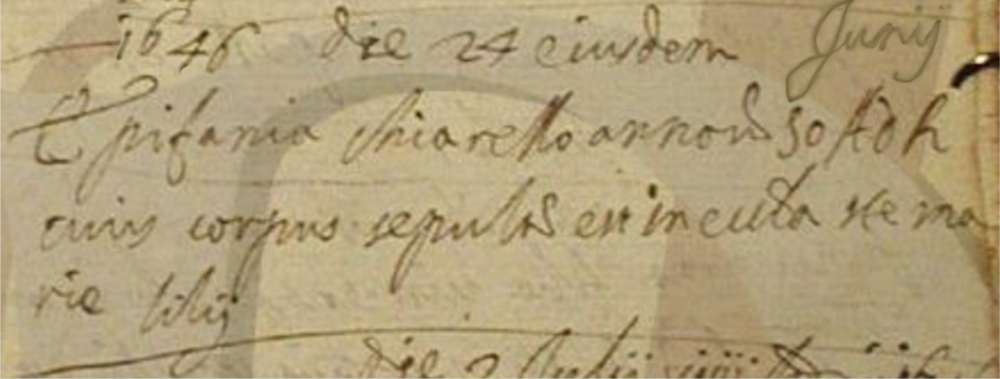 Junij
1646 die 24 eiusdem
Epifania Chiarello annorũ 50
cuius corpus sepultũ est in ecc̃la ste ma
rie lilij
die 2 Julij